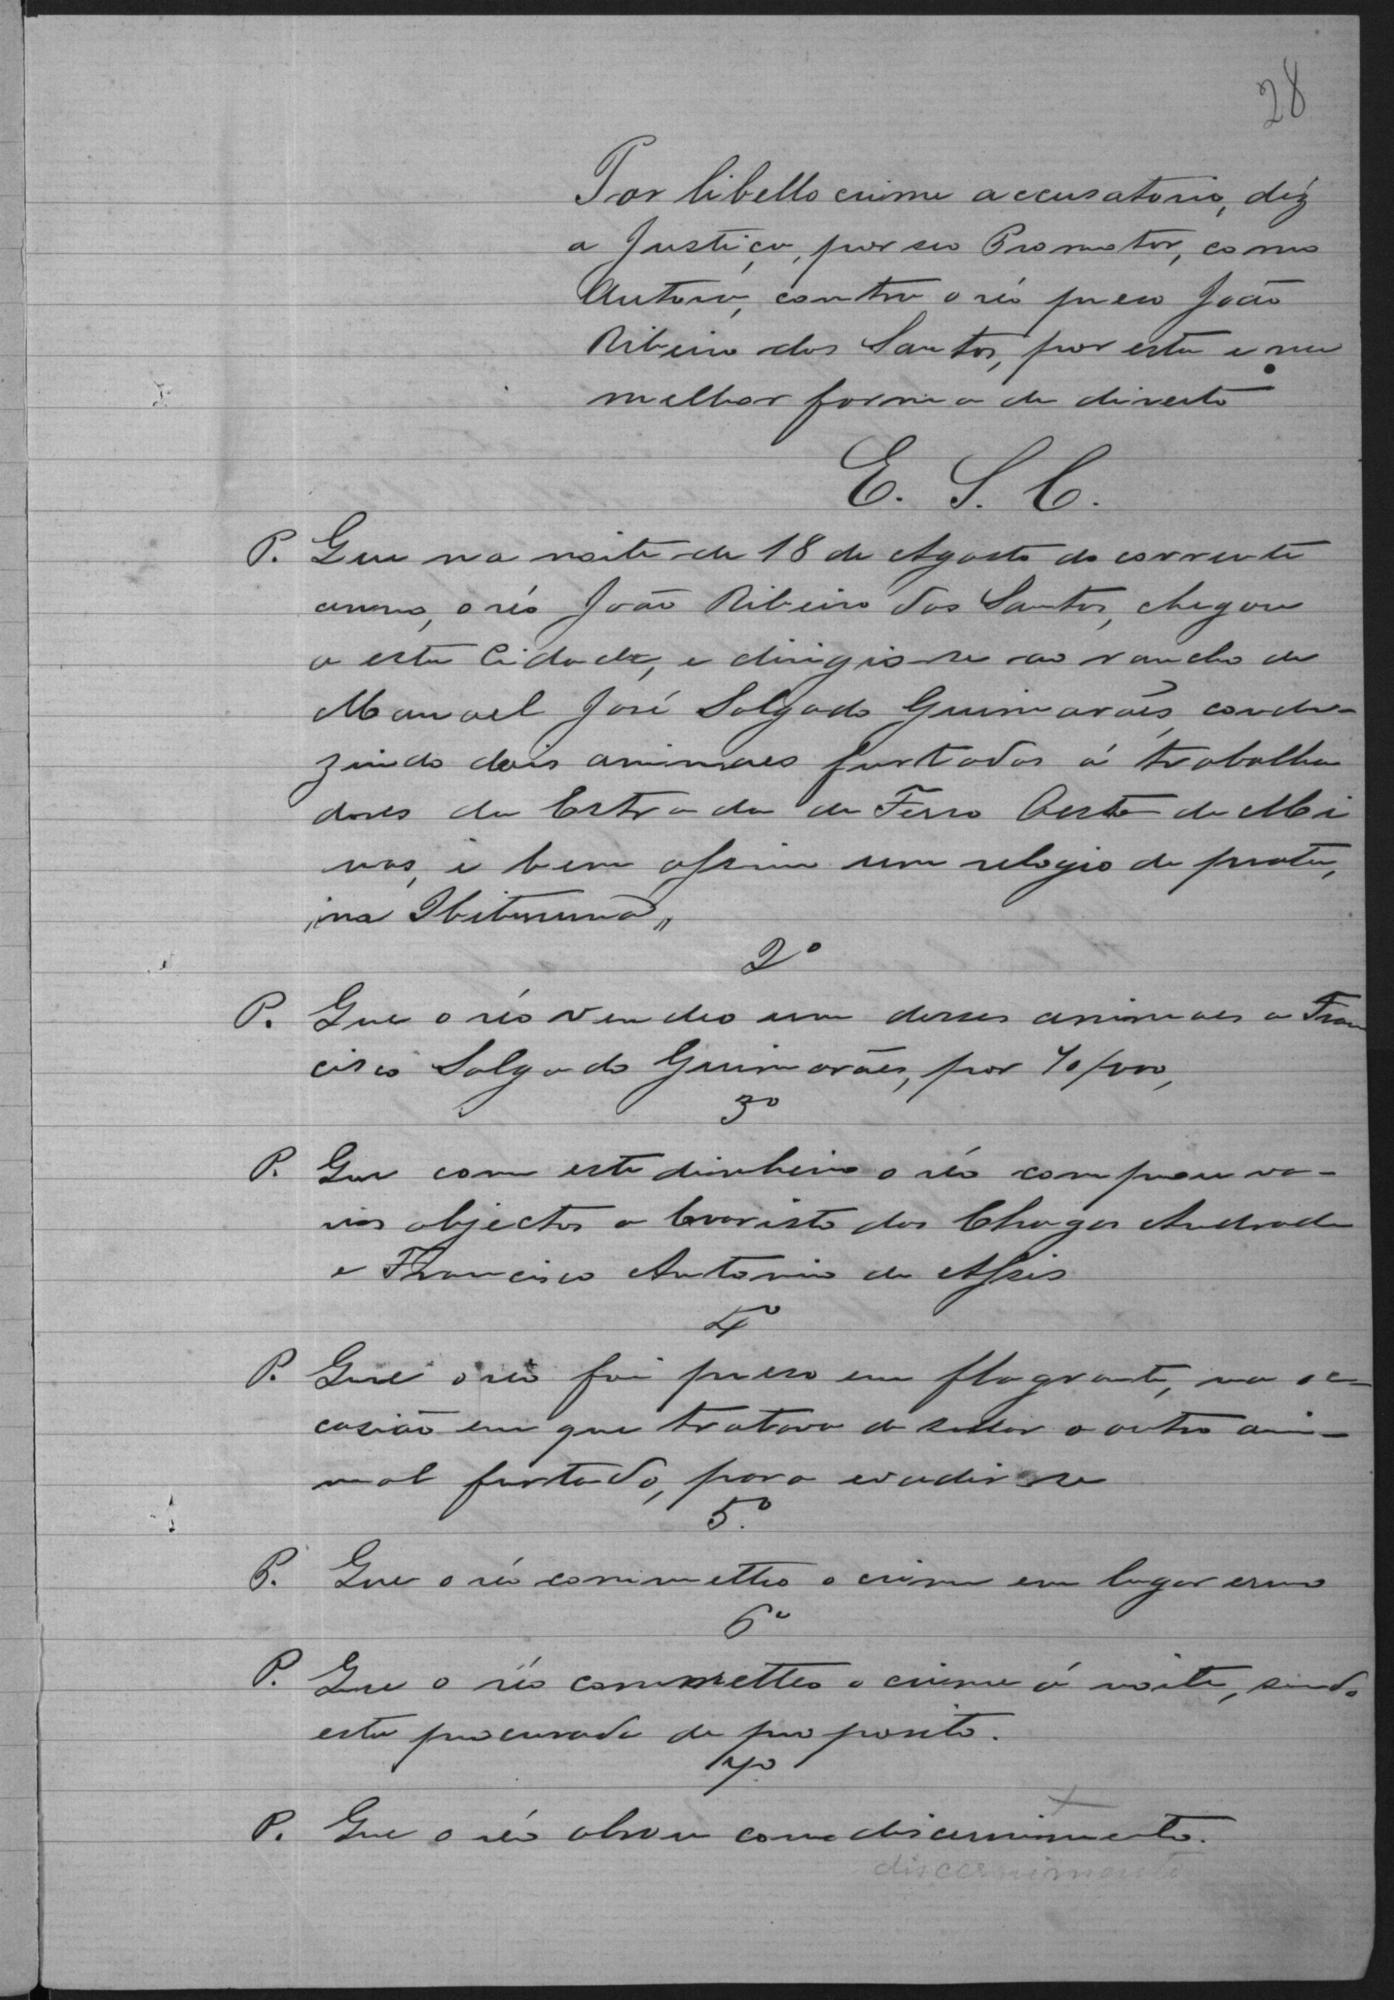 28
Por libello crime accusatorio, diz
a Justiça, por seo Promotor, como
Autora, contra o réo preso João
Ribeiro dos Santos, por esta e na
melhor forma de direito
E. S. C.
P. Que na noite de 18 de Agosto do corrente
anno, o réo João Ribeiro dos Santos, chegou
a esta Cidade, e dirigio-se ao rancho de
Manoel José Salgado Guimarães, condu-
zindo dois animaes furtados á trabalha
dores da Estrada de Ferro Oeste de Mi
nas, e bem assim um relogio de prata,
"na Ibituruna"
2º
P. Que o réo vendeo um desses animaes a Fran
cisco Salgado Guimarães, por 70/000,
3º
P. Que com este dinheiro o réo comprou va-
rios objectos a Evaristo das Chagas Andrade
e Francisco Antonio de Assis
4º
P. Que o réo foi preso em flagrante, na oc-
casião em que tratava de sellar o outro ani-
mal furtado, para evadir-se
5º
P. Que o réo commetteo o crime em lugar ermo
6º
P. Que o réo commetteo o crime á noite, sendo
esta procurada de proposito.
7º
P. Que o réo obrou com discernimento.
discernimento